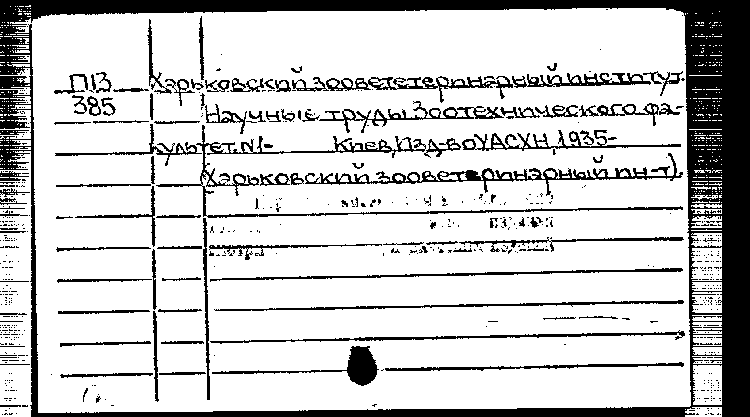 П13 Харьковский зооветеринарный институт.
385 Научные труды Зоотехнического фа-
культет. N1- Киев, Изд-во УАСХН, 1935-
(Харьковский зооветеринарный ин-т).